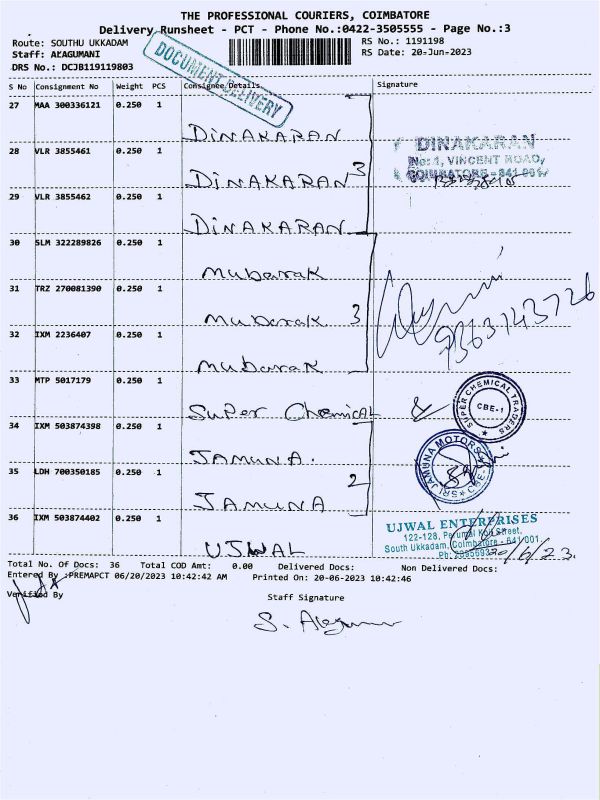 THE PROFESSIONAL COURIERS, COIMBATORE
Delivery Runsheet - PCT - Phone No.:0422-3505555 - Page No.:3
Route: SOUTHU UKKADAM
RS No.: 1191198
Staff: ALAGUMANI
RS Date: 20-Jun-2023
DRS No.: DCJB119119803
DOCUMENT DELIVERY
S No Consignment No Weight PCS Consignee Details Signature
27 MAA 300336121 0.250 1 DINAKARAN
28 VLR 3855461 0.250 1 DINAKARAN 3
29 VLR 3855462 0.250 1 DINAKARAN
DINAKARAN
No: 1, VINCENT ROAD,
COIMBATORE - 641 001
30 SLM 322289826 0.250 1 mubarak
31 TRZ 270081390 0.250 1 mubarak 3
32 IXM 2236407 0.250 1 mubarak
9363143726
33 MTP 5017179 0.250 1 Super Chemical &
SUPER CHEMICAL TRADERS
CBE-1
34 IXM 503874398 0.250 1 JAMUNA.
35 LDH 700350185 0.250 1 JAMUNA 2
SRI JAMUNA MOTORS
36 IXM 503874402 0.250 1 UJWAL
UJWAL ENTERPRISES
122-128, Perumal Koil Street,
South Ukkadam, Coimbatore - 641 001.
20/6/23.
Total No. Of Docs: 36 Total COD Amt: 0.00 Delivered Docs: Non Delivered Docs:
Entered By :PREMAPCT 06/20/2023 10:42:42 AM Printed On: 20-06-2023 10:42:46
Verified By
Staff Signature